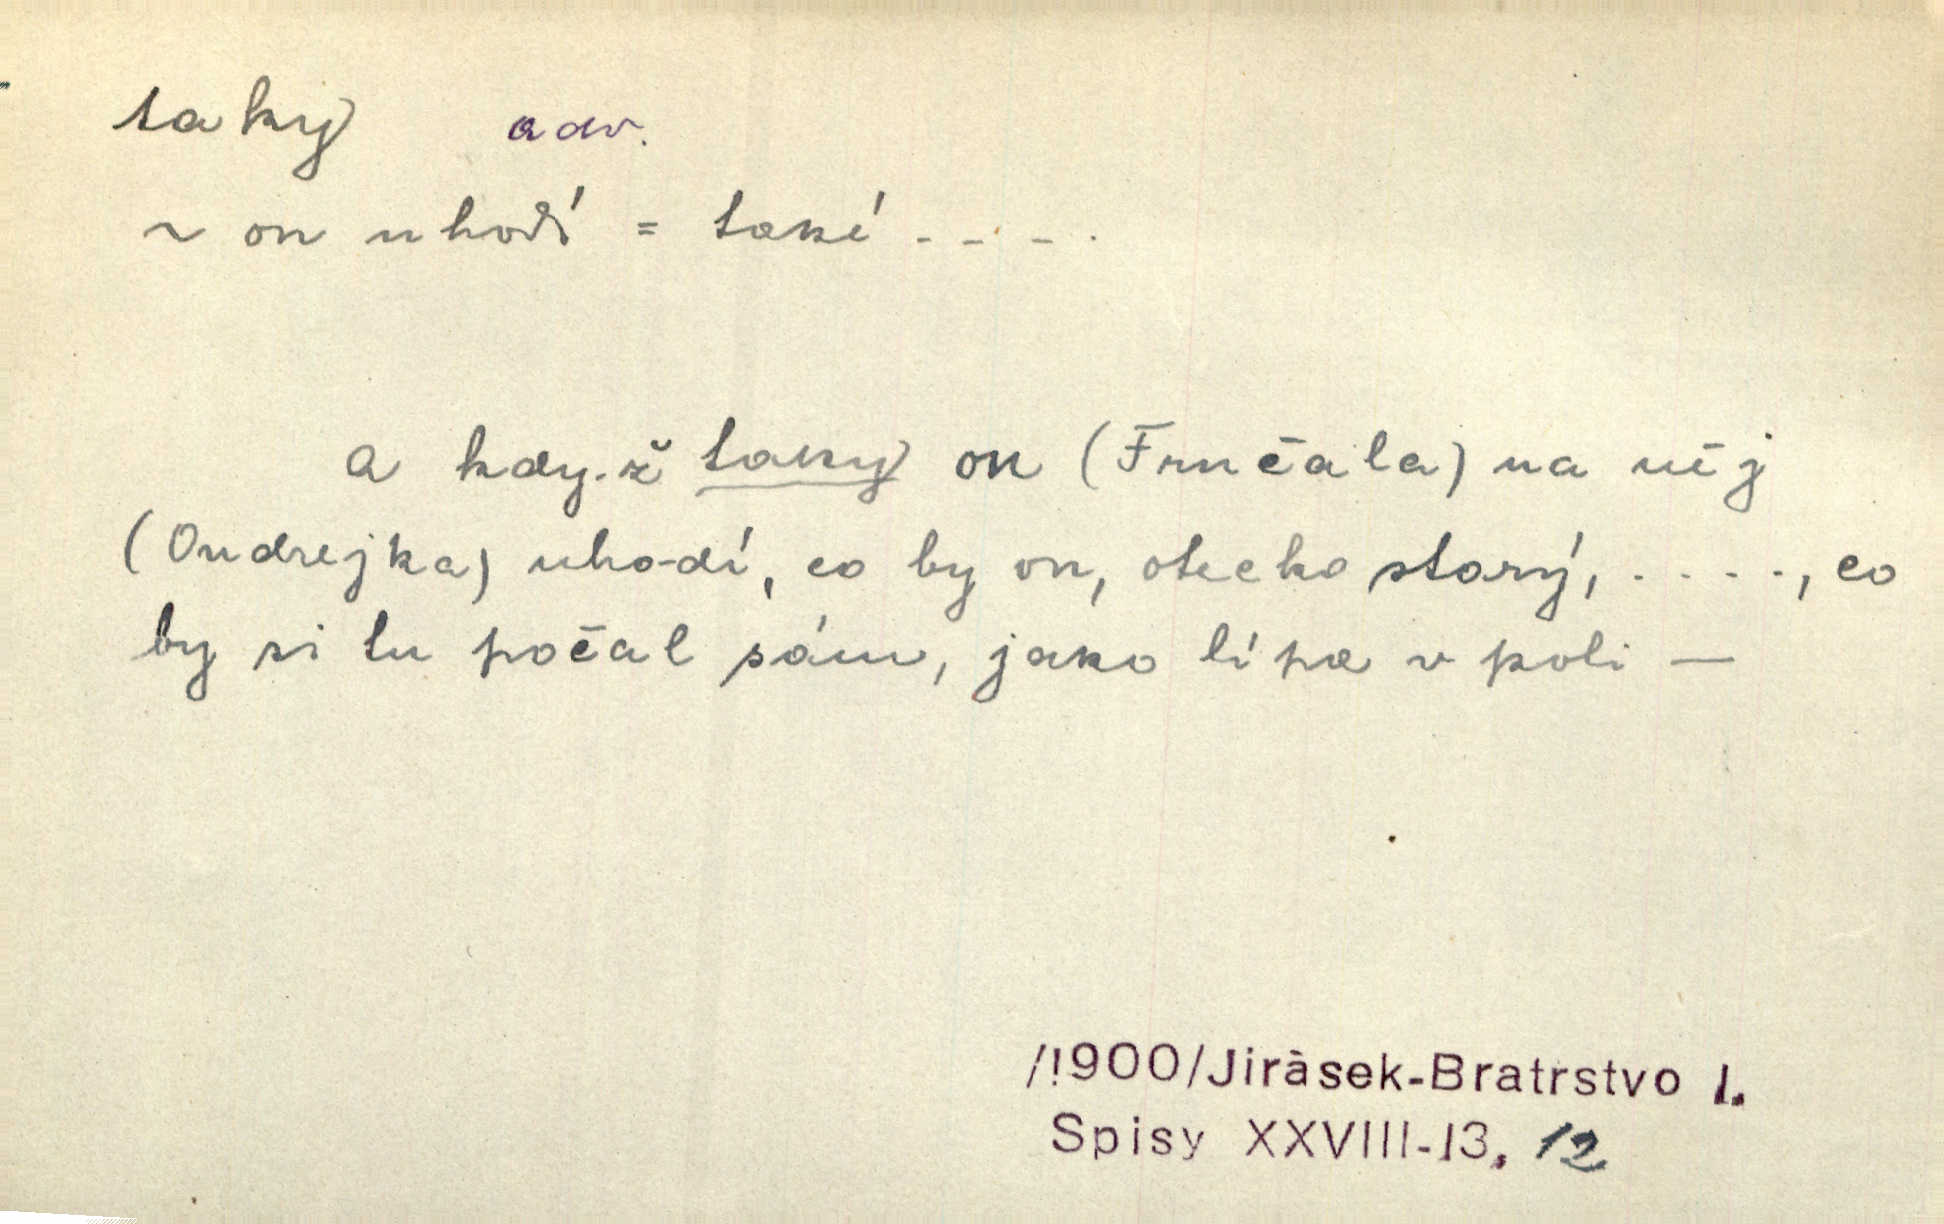 taky adv.
~ on uhodí = také - - - .
a když taky on (Frnčala) na něj
(Ondrejka) uhodí, co by on, otecko starý, . . . . , co
by si tu počal sám, jako lípa v poli —
/1900/Jirásek-Bratrstvo I.
Spisy XXVIII-13. 12